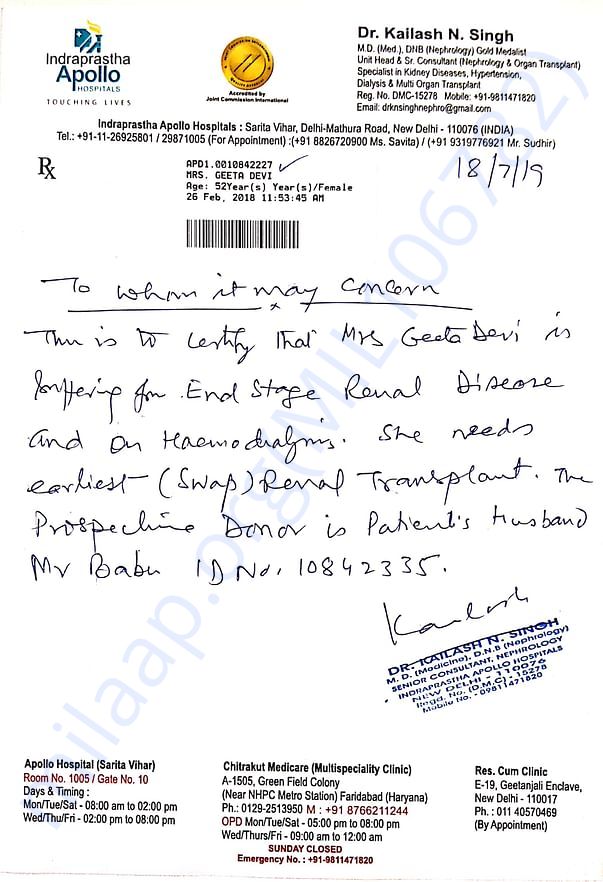 Indraprastha
Apollo
HOSPITALS
TOUCHING LIVES
Accredited by
Joint Commission International
Dr. Kailash N. Singh
M.D. (Med.), DNB (Nephrology) Gold Medalist
Unit Head & Sr. Consultant (Nephrology & Organ Transplant)
Specialist in Kidney Diseases, Hypertension,
Dialysis & Multi Organ Transplant
Reg. No. DMC-15278 Mobile: +91-9811471820
Email: drknsinghnephro@gmail.com
Indraprastha Apollo Hospitals : Sarita Vihar, Delhi-Mathura Road, New Delhi - 110076 (INDIA)
Tel.: +91-11-26925801 / 29871005 (For Appointment) :(+91 8826720900 Ms. Savita) / (+91 9319776921 Mr. Sudhir)
Rx
APD1.0010842227
MRS. GEETA DEVI
Age: 52Year(s) Year(s)/Female
26 Feb, 2018 11:53:45 AM
18/7/19
To whom it may concern
This is to certify that Mrs Geeta Devi is
suffering for End Stage Renal Disease
and on Haemodialysis. She needs
earliest (Swap) Renal Transplant. The
Prospective Donor is Patient's Husband
Mr Babu ID No. 10842335.
Kailash
DR. KAILASH N. SINGH
M. D. (Medicine), D.N.B (Nephrology)
SENIOR CONSULTANT, NEPHROLOGY
INDRAPRASTHA APOLLO HOSPITALS
NEW DELHI - 110076
Regd. No. (D.M.C) - 15278
Mobile No. - 09811471820
Apollo Hospital (Sarita Vihar)
Room No. 1005 / Gate No. 10
Days & Timing :
Mon/Tue/Sat - 08:00 am to 02:00 pm
Wed/Thu/Fri - 02:00 pm to 08:00 pm
Chitrakut Medicare (Multispeciality Clinic)
A-1505, Green Field Colony
(Near NHPC Metro Station) Faridabad (Haryana)
Ph.: 0129-2513950 M : +91 8766211244
OPD Mon/Tues/Sat - 05:00 pm to 08:00 pm
Wed/Thurs/Fri - 09:00 am to 12:00 am
SUNDAY CLOSED
Emergency No. : +91-9811471820
Res. Cum Clinic
E-19, Geetanjali Enclave,
New Delhi - 110017
Ph. : 011 40570469
(By Appointment)
milaap.org(MIL1106782)